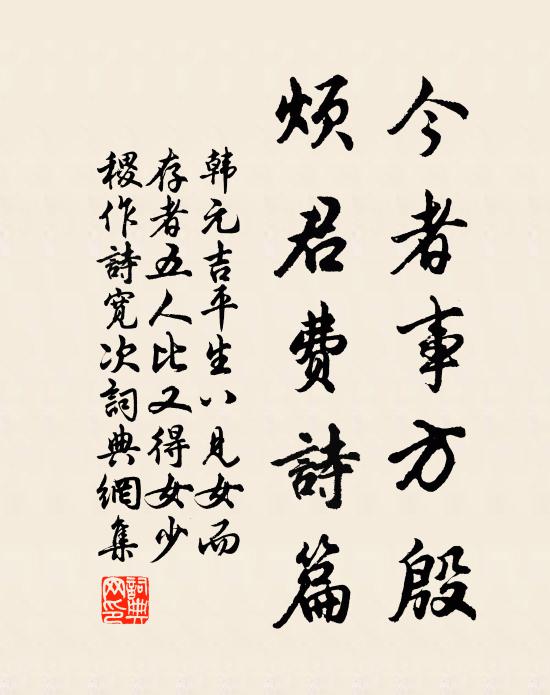 今者事方殷
烦君费詩篇
韩元吉平生八見女而
存者五人比又得女少
稷作詩宽次詞典網集
詞典
网印